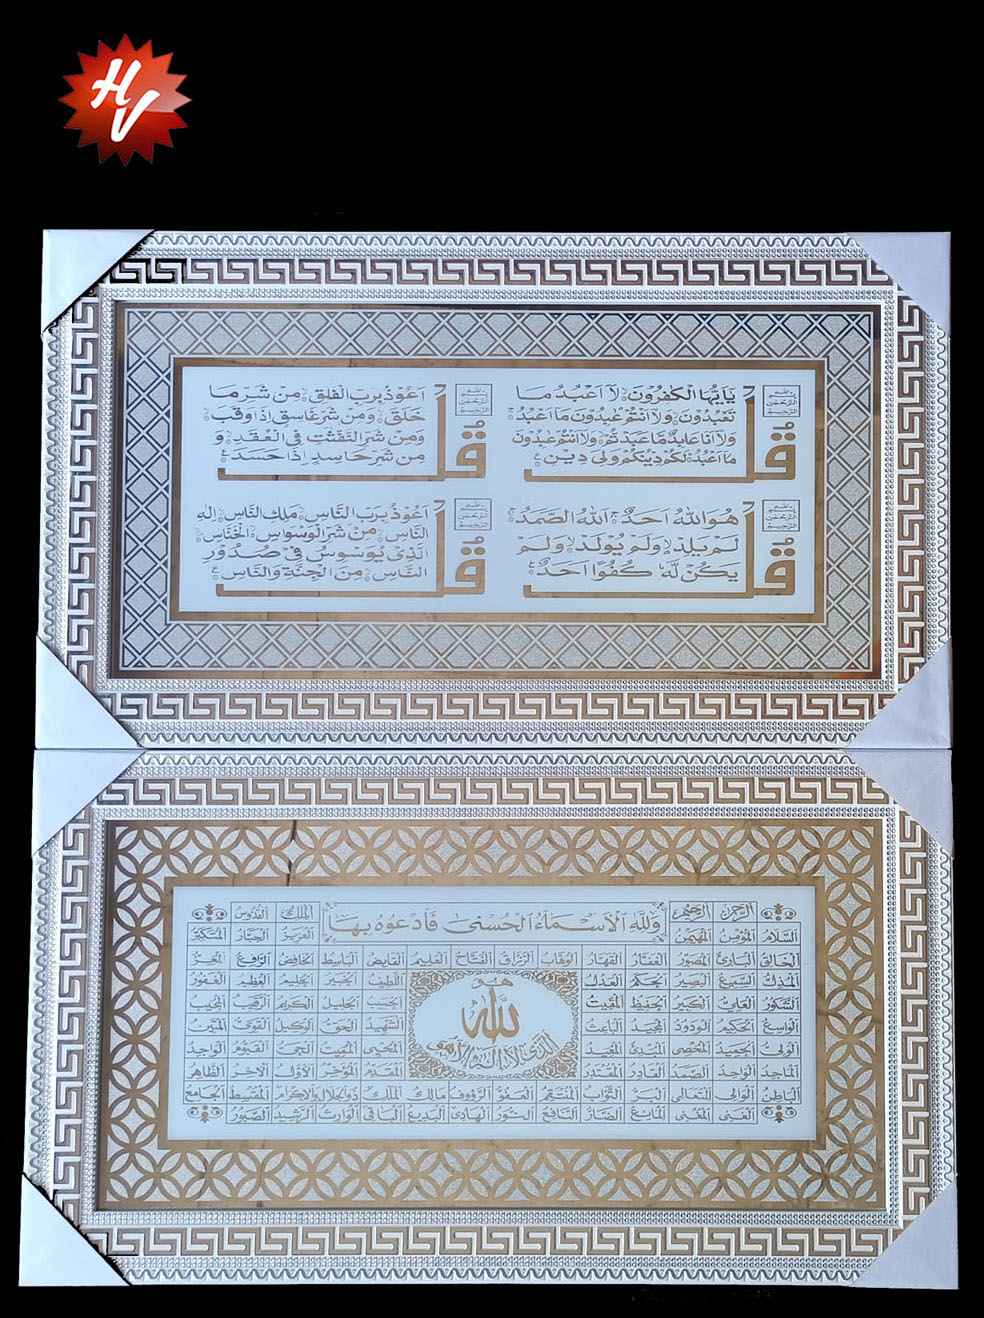 HV
بسم الله الرحمن الرحيم
قل
يٰاَيُّهَا الْكٰفِرُوْنَ لَآ اَعْبُدُ مَا
تَعْبُدُوْنَ وَلَا اَنْتُمْ عٰبِدُوْنَ مَا اَعْبُدُ
وَلَا اَنَا عَابِدٌ مَّا عَبَدْتُّمْ وَلَا اَنْتُمْ عٰبِدُوْنَ
مَا اَعْبُدُ لَكُمْ دِيْنُكُمْ وَلِيَ دِيْنِ
بسم الله الرحمن الرحيم
قل
اَعُوْذُ بِرَبِّ الْفَلَقِ مِنْ شَرِّ مَا
خَلَقَ وَمِنْ شَرِّ غَاسِقٍ اِذَا وَقَبَ
وَمِنْ شَرِّ النَّفّٰثٰتِ فِي الْعُقَدِ وَ
مِنْ شَرِّ حَاسِدٍ اِذَا حَسَدَ
بسم الله الرحمن الرحيم
قل
هُوَ اللهُ اَحَدٌ اَللهُ الصَّمَدُ
لَمْ يَلِدْ وَلَمْ يُوْلَدْ وَلَمْ
يَكُنْ لَّهٗ كُفُوًا اَحَدٌ
بسم الله الرحمن الرحيم
قل
اَعُوْذُ بِرَبِّ النَّاسِ مَلِكِ النَّاسِ اِلٰهِ
النَّاسِ مِنْ شَرِّ الْوَسْوَاسِ الْخَنَّاسِ
الَّذِيْ يُوَسْوِسُ فِيْ صُدُوْرِ
النَّاسِ مِنَ الْجِنَّةِ وَالنَّاسِ
الرحمن الرحيم الملك القدوس
وَلِلّٰهِ الْاَسْمَاءُ الْحُسْنٰى فَادْعُوهُ بِهَا
السلام المؤمن المهيمن العزيز الجبار المتكبر
الخالق البارئ المصور الغفار القهار الوهاب الرزاق الفتاح العليم القابض الباسط الخافض الرافع المعز
المذل السميع البصير الحكم العدل اللطيف الخبير الحليم العظيم الغفور
الشكور العلي الكبير الحفيظ المقيت الحسيب الجليل الكريم الرقيب المجيب
الواسع الحكيم الودود المجيد الباعث الشهيد الحق الوكيل القوي المتين
الولي الحميد المحصي المبدئ المعيد المحيي المميت الحي القيوم الواجد
الماجد الواحد الصمد القادر المقتدر المقدم المؤخر الاول الاخر الظاهر
هو
الله
الذي لا اله الا هو
الباطن الوالي المتعالي البر التواب المنتقم العفو الرؤوف مالك الملك ذوالجلال والاكرام المقسط الجامع
الغني المغني المانع الضار النافع النور الهادي البديع الباقي الوارث الرشيد الصبور